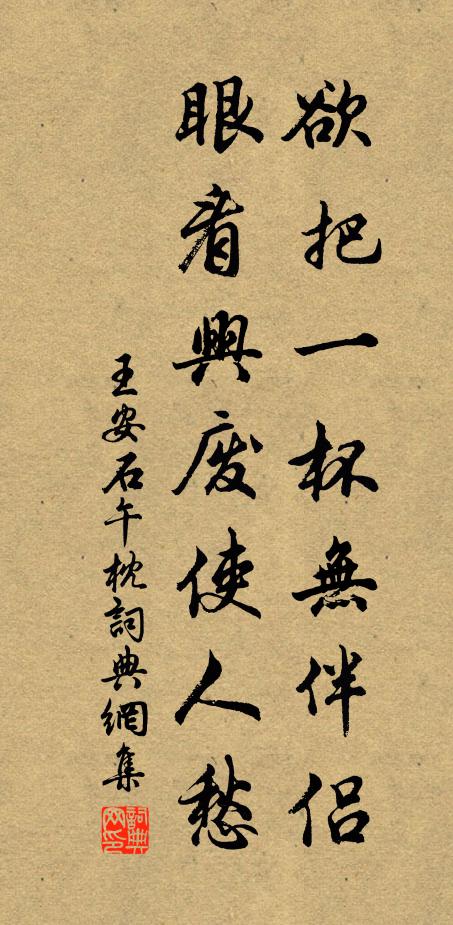 欲把一杯無伴侶
眼看興廢使人愁
王安石午枕詞典網集
詞典网印